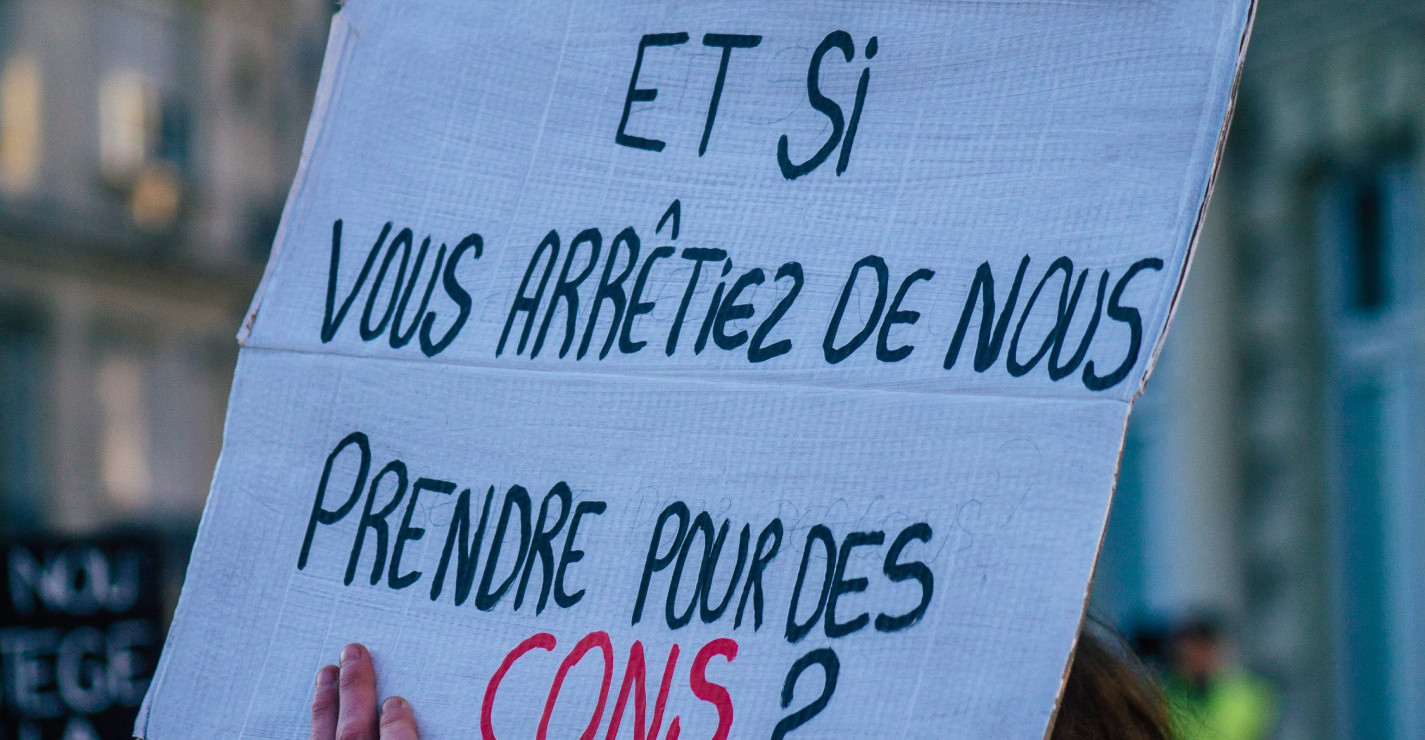 ET Si
VOUS ARRÊTiEZ DE NOUS
PRENDRE POUR DES
CONS ?
NOU
TEGE
LA